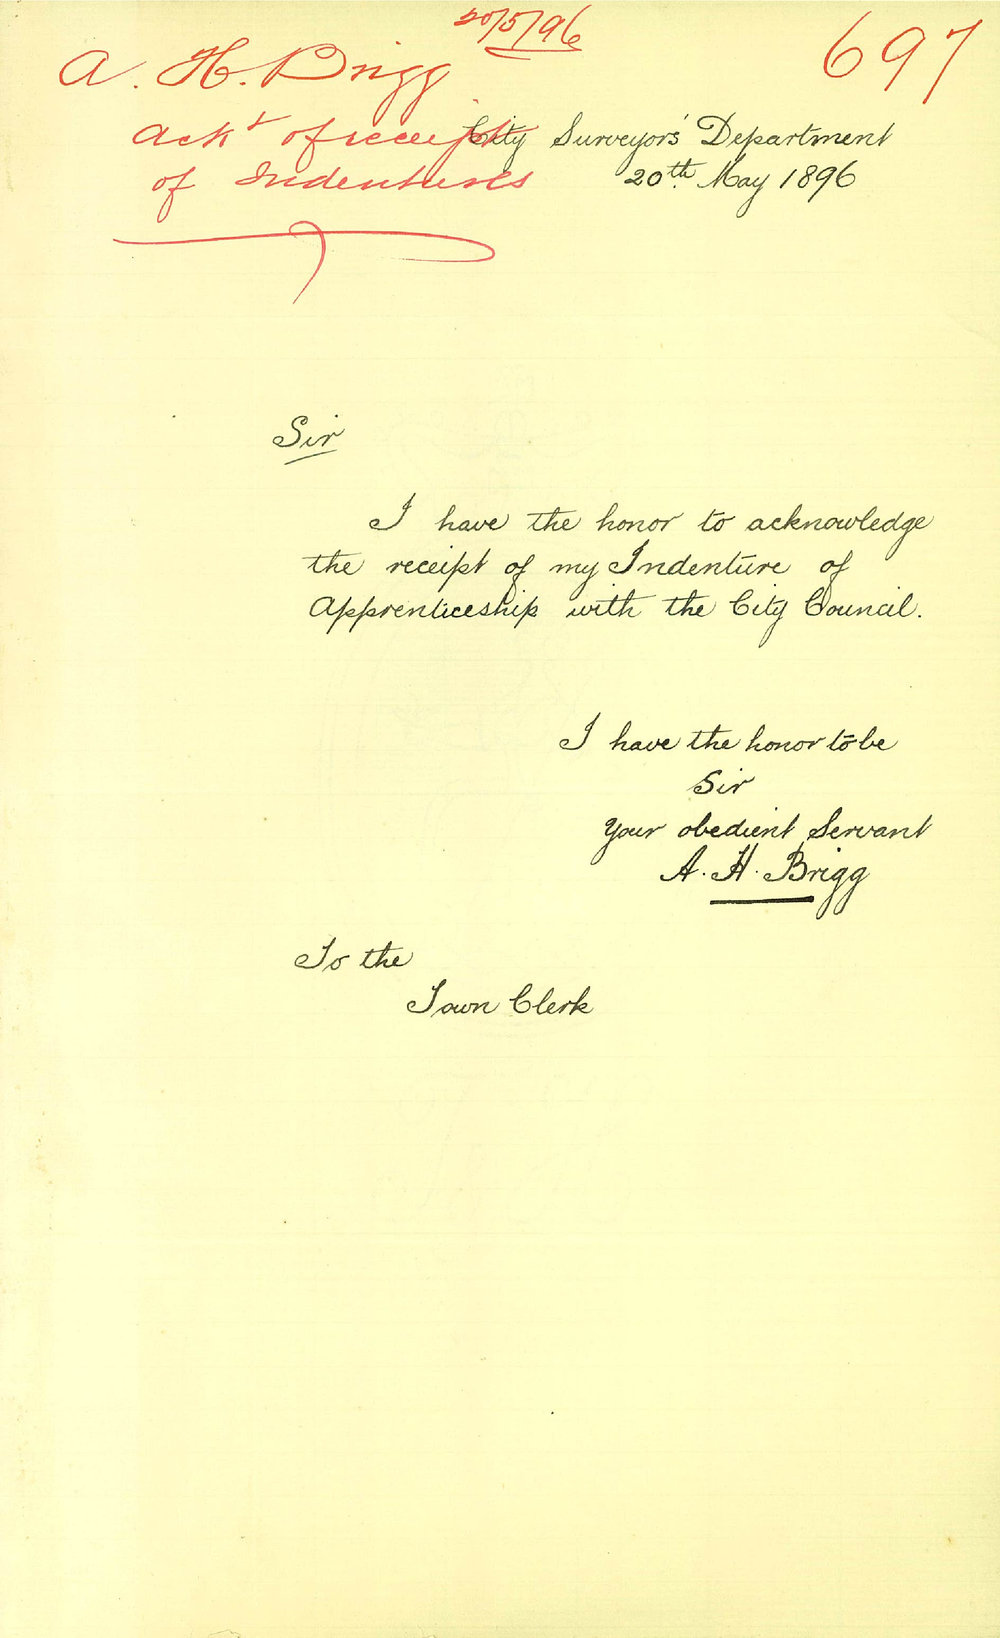 20/5/96
697
A. H. Brigg
Ackt of receipt
of Indentures
City Surveyor's Department
20th May 1896
Sir
I have the honor to acknowledge
the receipt of my Indenture of
Apprenticeship with the City Council.
I have the honor to be
Sir
Your obedient Servant
A. H. Brigg
To the
Town Clerk